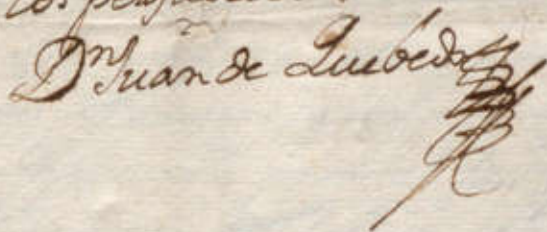 Dn Juan de Quebedo